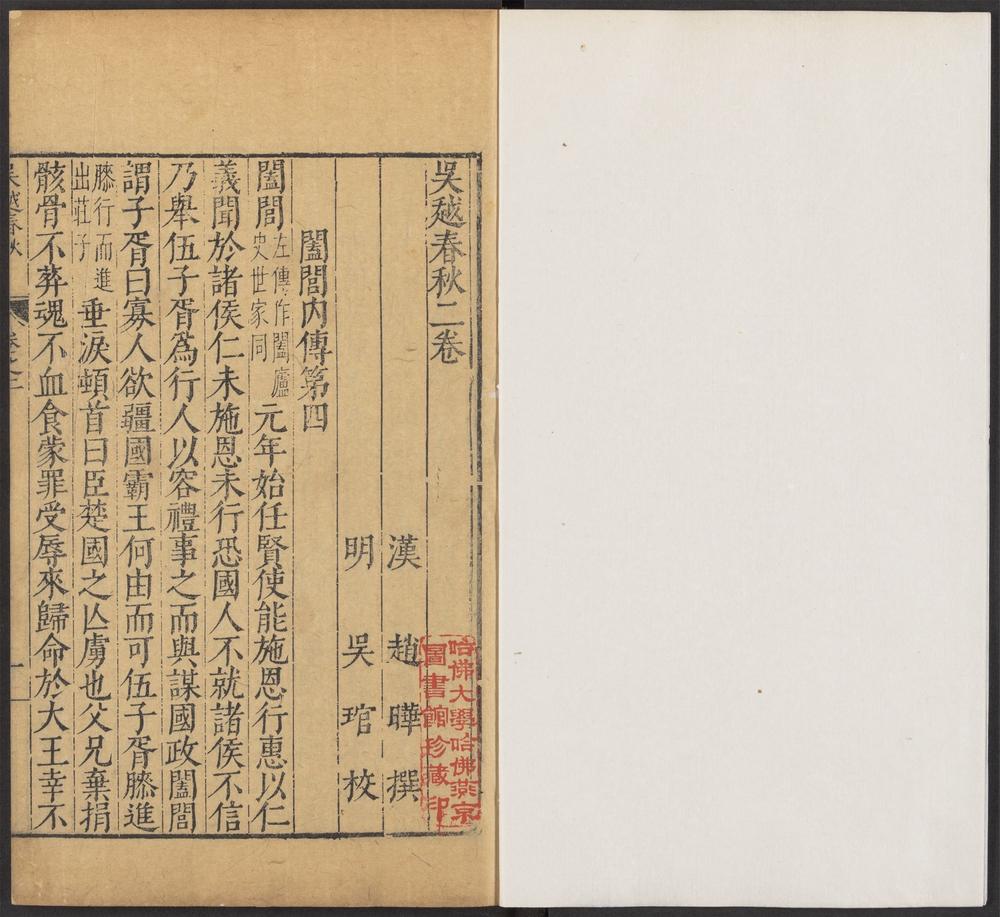 吳越春秋二卷
漢 趙曄 撰
明 吳琯 校
闔閭内傳第四
闔閭左傳作闔廬史世家同元年始任賢使能施恩行惠以仁
義聞於諸侯仁未施恩未行恐國人不就諸侯不信
乃舉伍子胥爲行人以客禮事之而與謀國政闔閭
謂子胥曰寡人欲疆國霸王何由而可伍子胥膝進
膝行而進出莊子垂淚頓首曰臣楚國之亾虜也父兄棄捐
骸骨不葬魂不血食蒙罪受辱來歸命於大王幸不
吳越春秋
卷之二
一
哈佛大學哈佛燕京
圖書館珍藏印